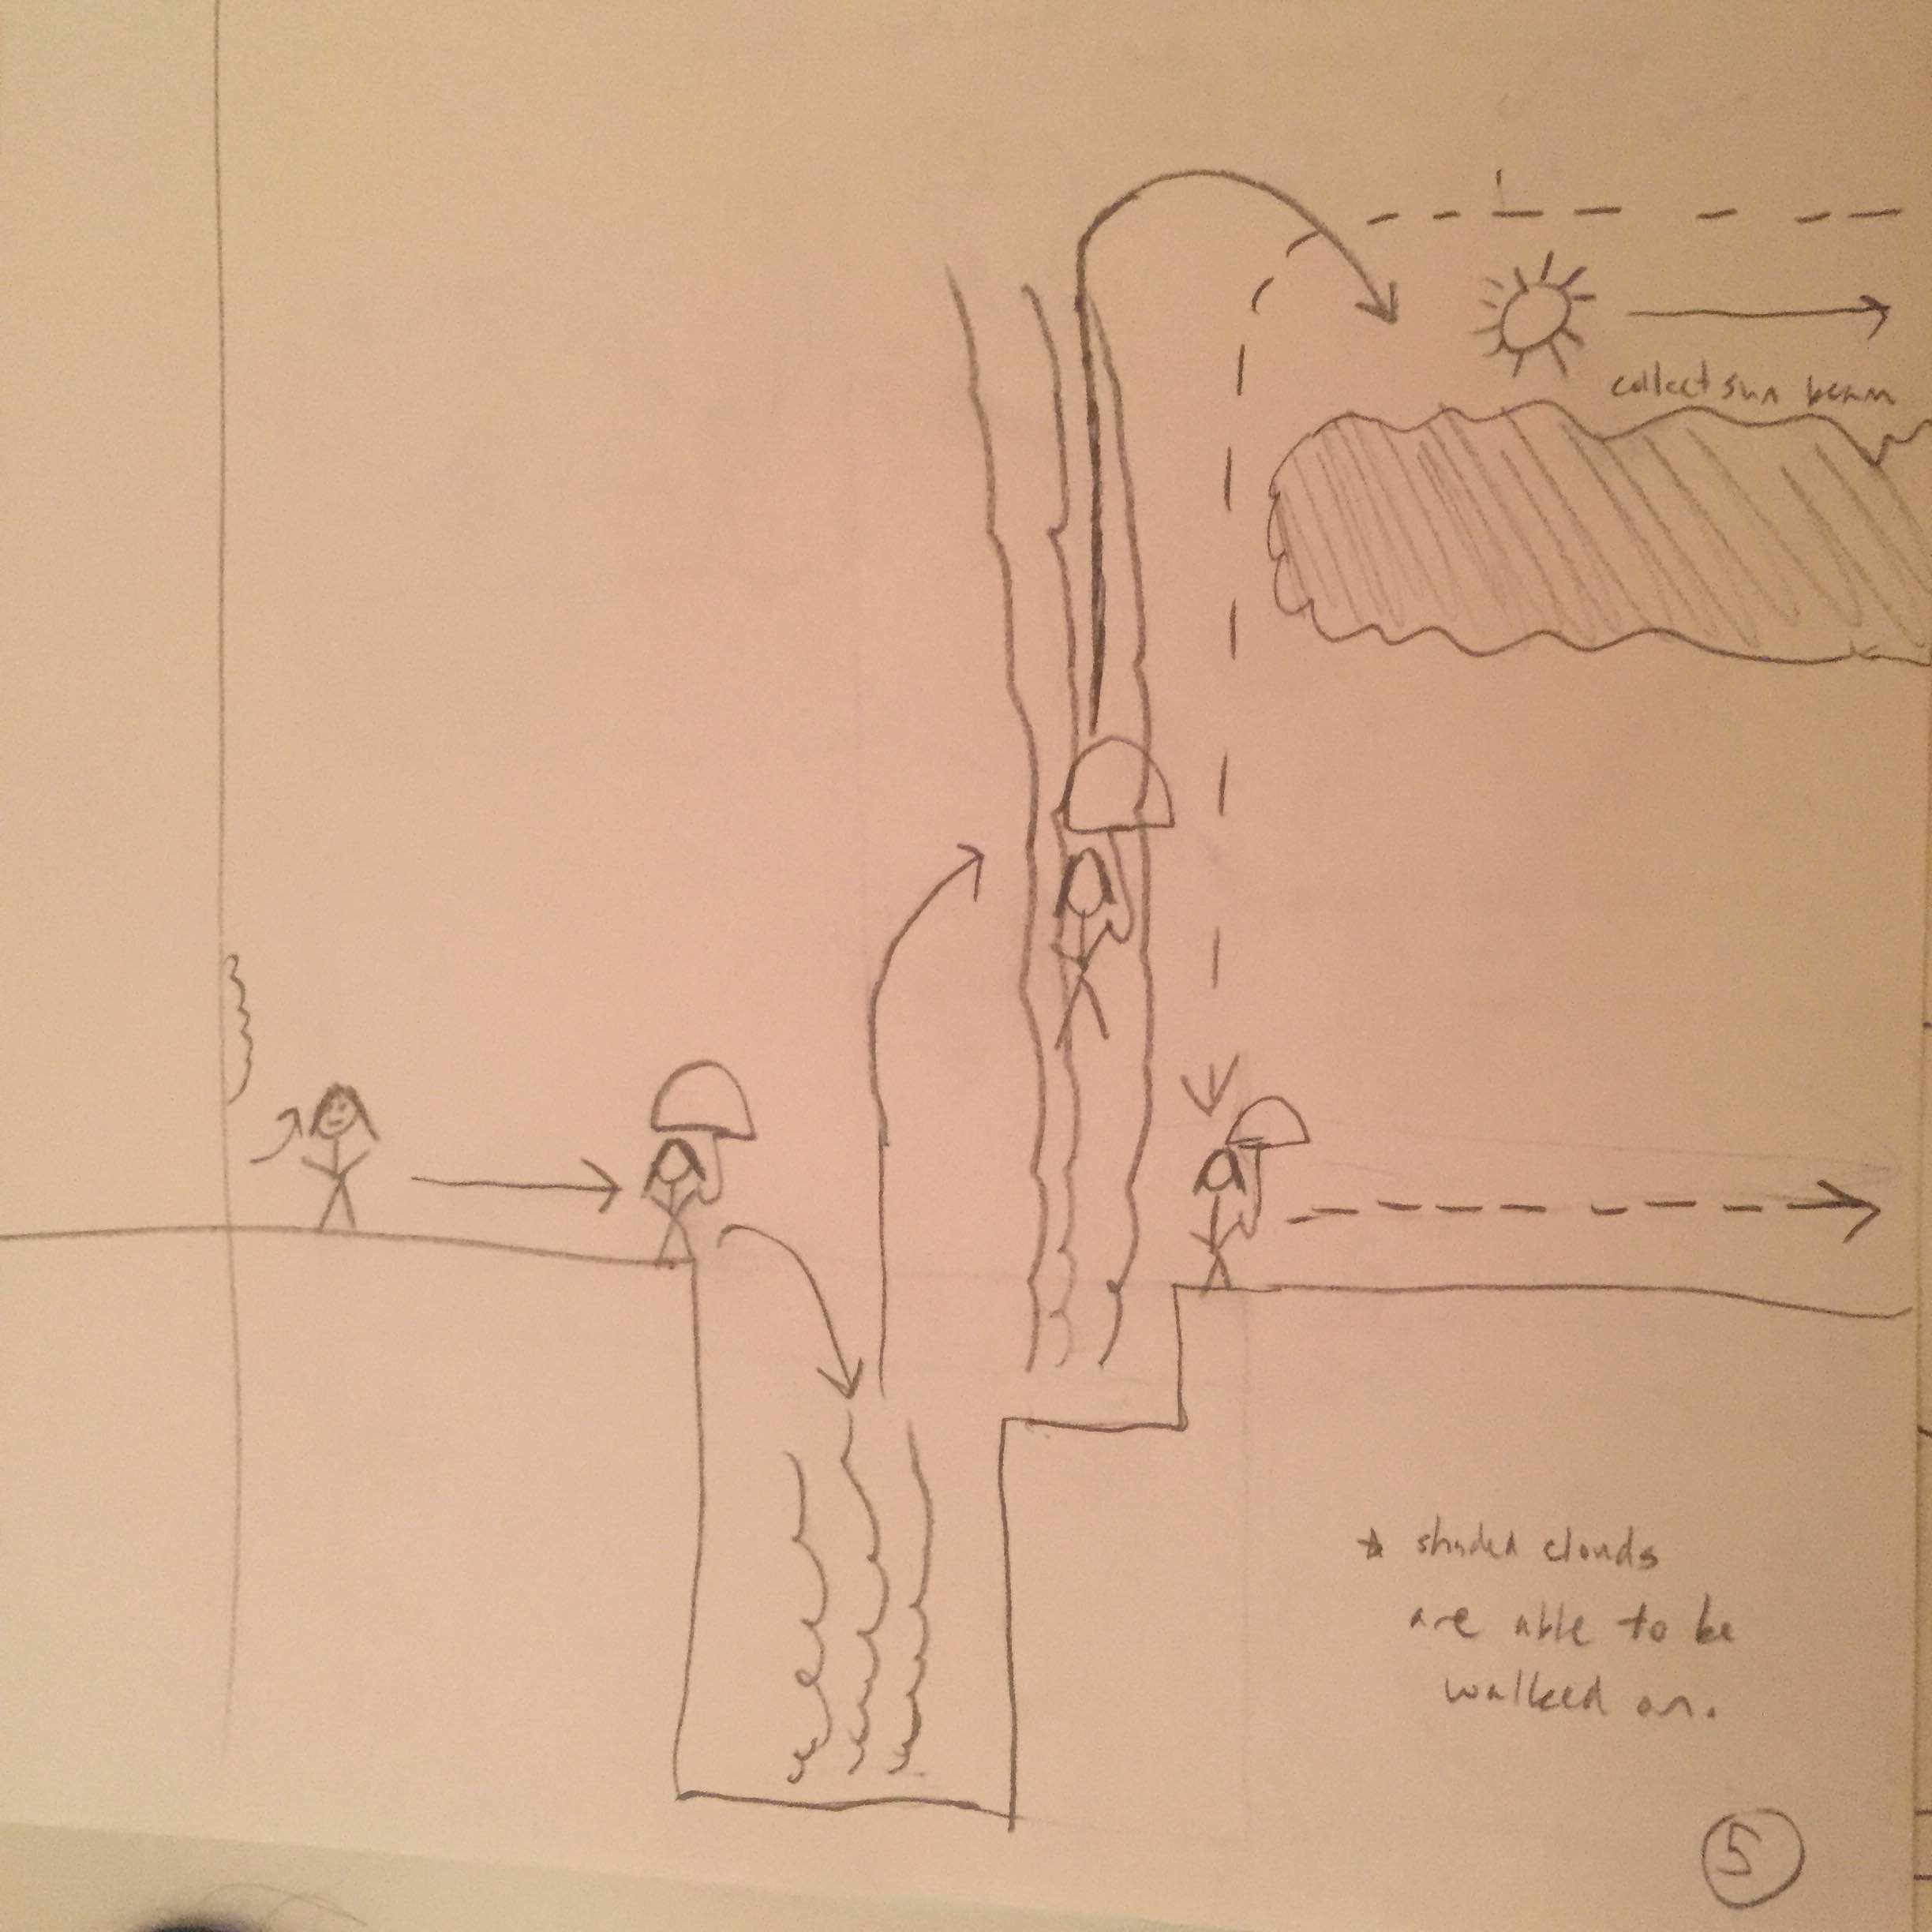 collect sun beam
☆ shaded clouds
are able to be
walked on.
5